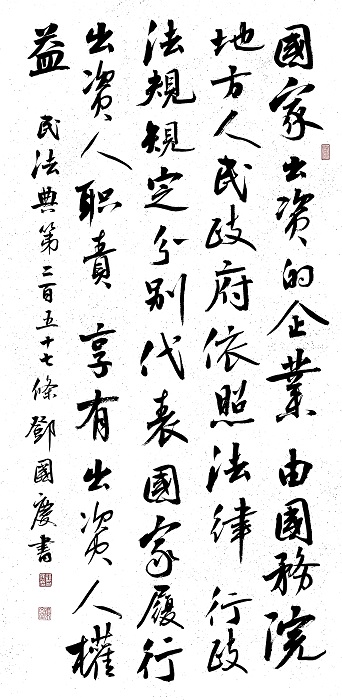 國家出资的企業由國務院
地方人民政府依照法律行政
法規規定分别代表國家履行
出资人职責享有出资人權
益
民法典第二百五十七條鄧國慶書